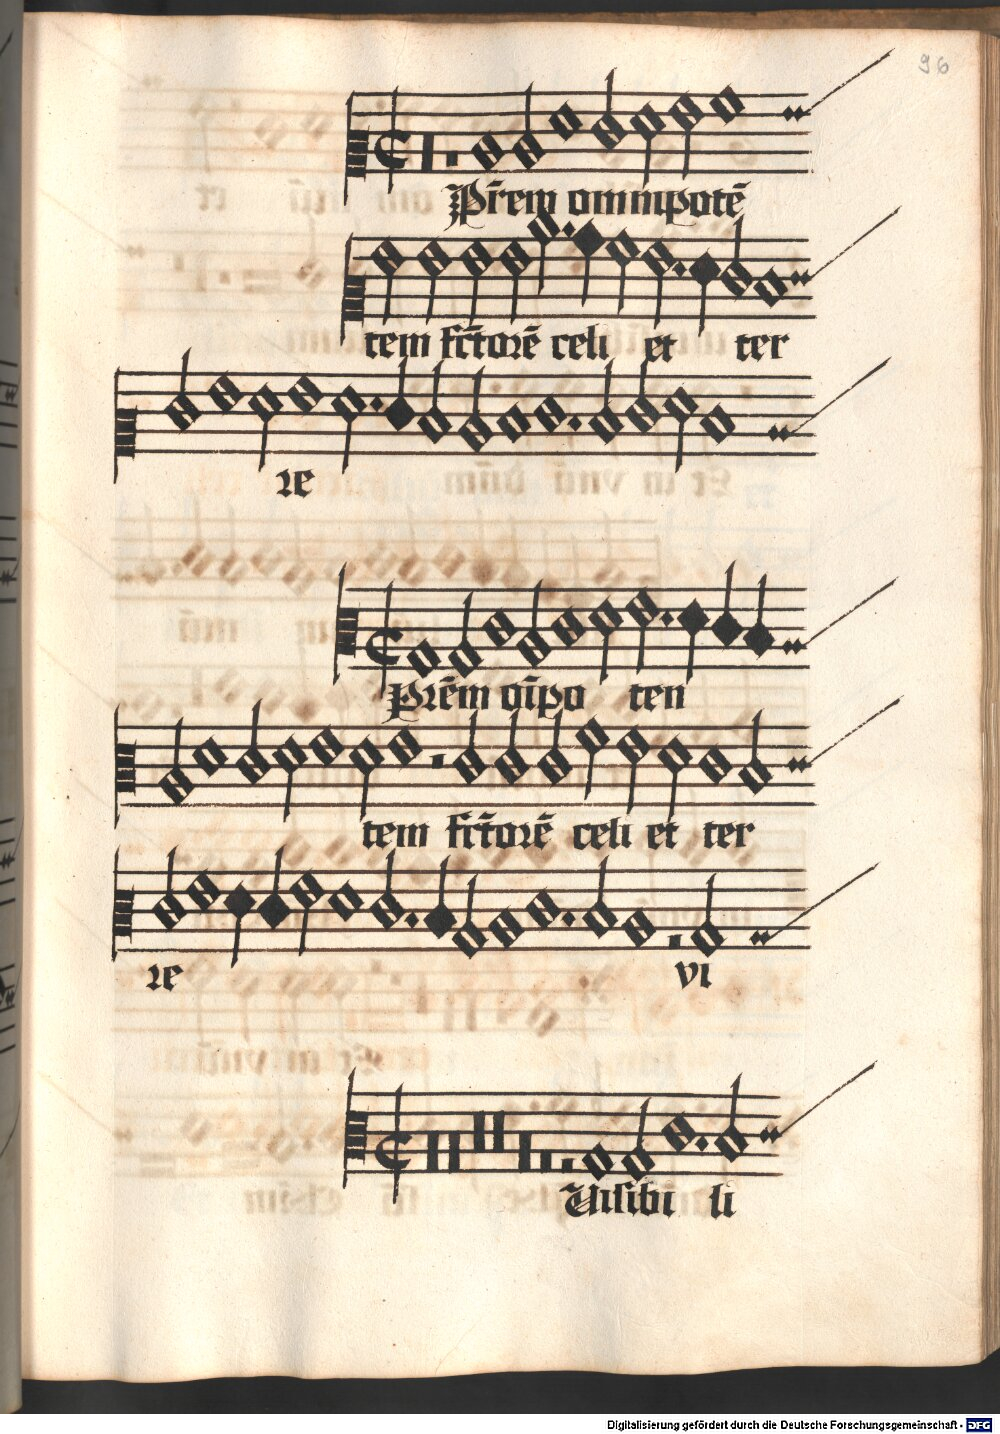 96
Pr̄em omnipotē
tem fct̄orē celi et ter
re
Pr̄em oīpo ten
tem fct̄orē celi et ter
re vi
Uisibi li
Digitalisierung gefördert durch die Deutsche Forschungsgemeinschaft - DFG